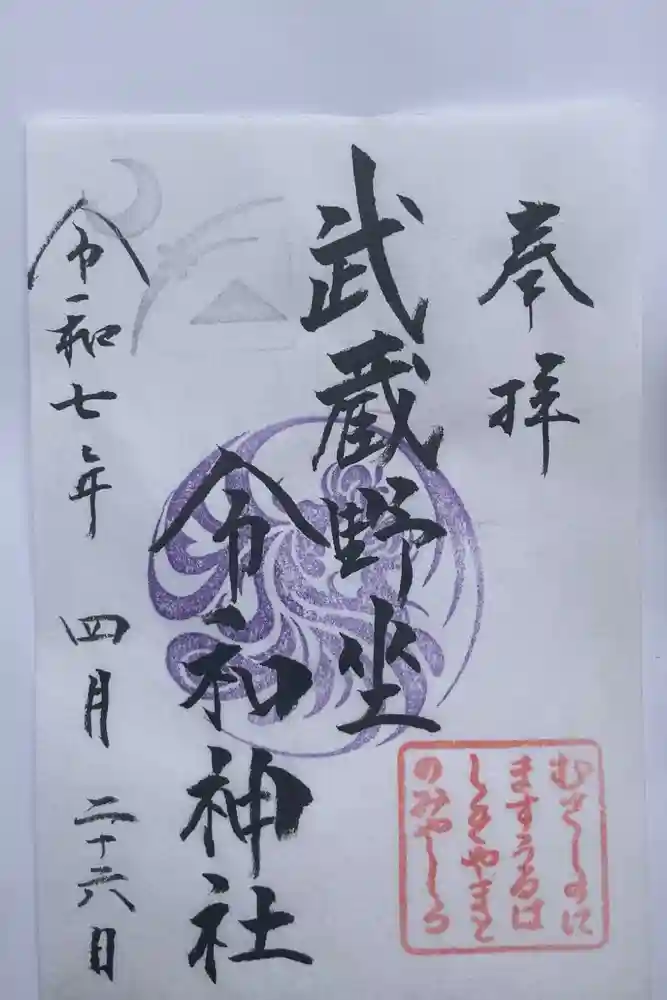 奉拝
武蔵野坐
令和神社
令和七年 四月 二十六日
むさしのに
ますうるは
しきやまと
のみやしろ